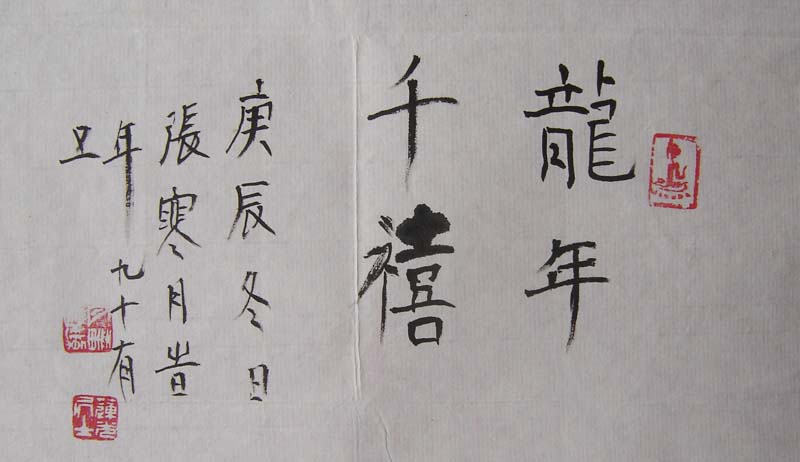 龍年
千禧
庚辰冬日
張寒月旹
年九十有
五